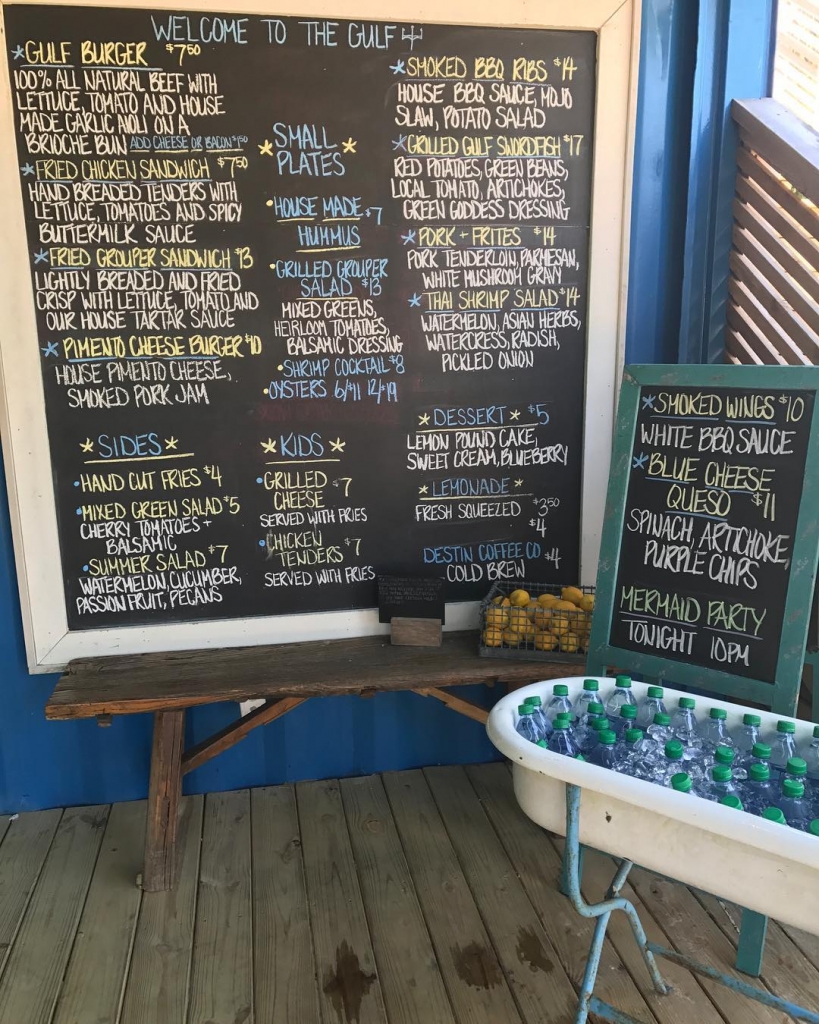 WELCOME TO THE GULF
*GULF BURGER $7.50
100% ALL NATURAL BEEF WITH
LETTUCE, TOMATO AND HOUSE
MADE GARLIC AIOLI ON A
BRIOCHE BUN ADD CHEESE OR BACON $1.50
*FRIED CHICKEN SANDWICH $7.50
HAND BREADED TENDERS WITH
LETTUCE, TOMATOES AND SPICY
BUTTERMILK SAUCE
*FRIED GROUPER SANDWICH $13
LIGHTLY BREADED AND FRIED
CRISP WITH LETTUCE, TOMATO AND
OUR HOUSE TARTAR SAUCE
*PIMENTO CHEESE BURGER $10
HOUSE PIMENTO CHEESE,
SMOKED PORK JAM
*SIDES*
•HAND CUT FRIES $4
•MIXED GREEN SALAD $5
CHERRY TOMATOES +
BALSAMIC
•SUMMER SALAD $7
WATERMELON, CUCUMBER,
PASSION FRUIT, PECANS
*SMALL
PLATES*
•HOUSE MADE $7
HUMMUS
•GRILLED GROUPER
SALAD $13
MIXED GREENS,
HEIRLOOM TOMATOES,
BALSAMIC DRESSING
•SHRIMP COCKTAIL $8
•OYSTERS 6/$11 12/$19
*KIDS*
•GRILLED
CHEESE $7
SERVED WITH FRIES
•CHICKEN
TENDERS $7
SERVED WITH FRIES
*SMOKED BBQ RIBS $14
HOUSE BBQ SAUCE, MOJO
SLAW, POTATO SALAD
*GRILLED GULF SWORDFISH $17
RED POTATOES, GREEN BEANS,
LOCAL TOMATO, ARTICHOKES,
GREEN GODDESS DRESSING
*PORK + FRITES $14
PORK TENDERLOIN, PARMESAN,
WHITE MUSHROOM GRAVY
*THAI SHRIMP SALAD $14
WATERMELON, ASIAN HERBS,
WATERCRESS, RADISH,
PICKLED ONION
*DESSERT* $5
LEMON POUND CAKE,
SWEET CREAM, BLUEBERRY
*LEMONADE*
FRESH SQUEEZED $3.50
$4
DESTIN COFFEE CO $4
COLD BREW
*SMOKED WINGS $10
WHITE BBQ SAUCE
*BLUE CHEESE
QUESO $11
SPINACH, ARTICHOKE,
PURPLE CHIPS
MERMAID PARTY
TONIGHT 10PM